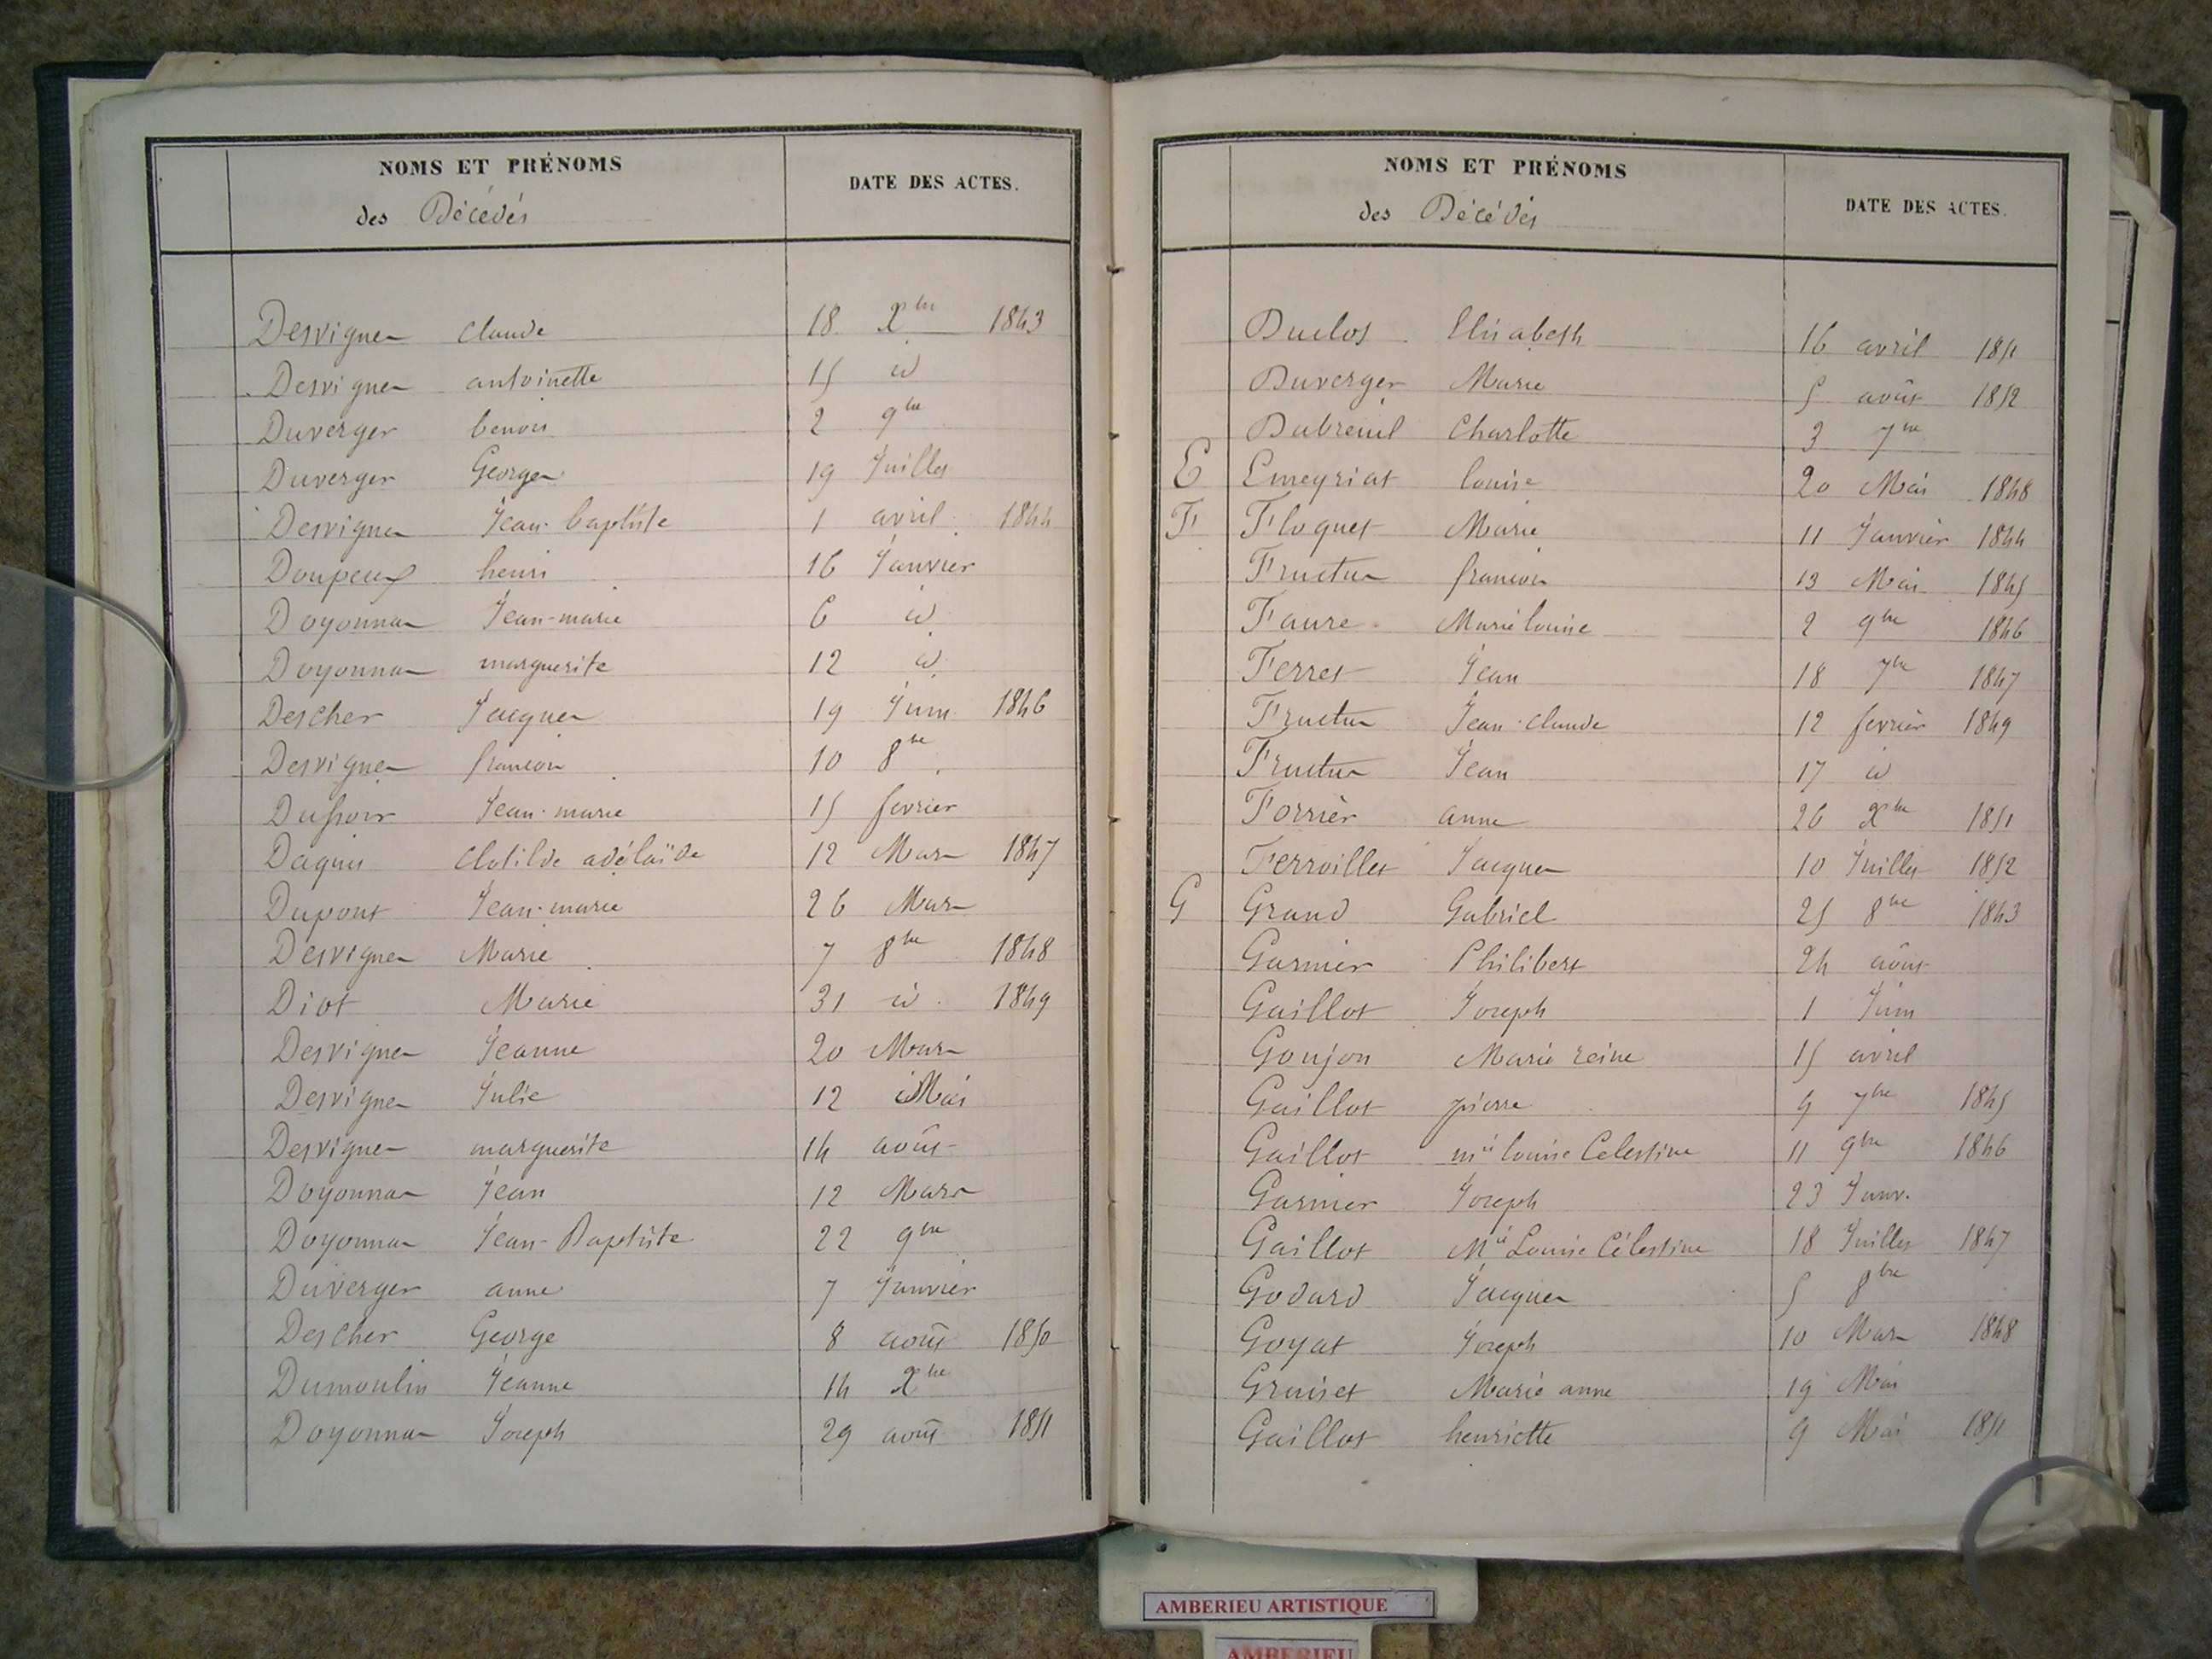 NOMS ET PRÉNOMS
des Décédés
DATE DES ACTES.
Desvignes Claude 18 Xbre 1843
Desvignes antoinette 15 id
Duverger benois 2 9bre
Duverger Georges 19 Juillet
Desvignes Jean-baptiste 1 avril 1844
Doupeux henri 16 Janvier
Doyonnas Jean-marie 6 id
Doyonnas marguerite 12 id
Descher Jacques 19 Juin 1846
Desvignes francois 10 8bre
Jean-marie 15 fevrier
Daguis Clotilde adélaïde 12 Mars 1847
Dupont Jean-marie 26 Mars
Desvignes Marie 7 8bre 1848
Diot Marie 31 id 1849
Desvignes Jeanne 20 Mars
Desvignes Julie 12 Mai
Desvignes marguerite 14 août
Doyonnas Jean 12 Mars
Doyonnas Jean-Baptiste 22 9bre
Duverger anne 7 Janvier
Descher George 8 août 1850
Dumoulin Jeanne 14 Xbre
Doyonnas Joseph 29 août 1851
NOMS ET PRÉNOMS
des Décédés
DATE DES ACTES.
Duclos Elisabeth 16 avril 1851
Duverger Marie 5 août 1852
Dubreuil Charlotte 3 7bre
E Emeyriat louise 20 Mai 1848
F Floquet Marie 11 Janvier 1844
Fructus francois 13 Mai 1845
Faure Marie louise 2 9bre 1846
Ferret Jean 18 7bre 1847
Fructus Jean-claude 12 fevrier 1849
Fructus Jean 17 id
Forrièr anne 26 Xbre 1851
Ferroillet Jacques 10 Juillet 1852
G Grand Gabriel 25 8bre 1843
Garnier Philibert 24 août
Gaillot Joseph 1 Juin
Goujon Marie reine 15 avril
Gaillot pierre 9 7bre 1845
Gaillot mie louise Celestine 11 9bre 1846
Garnier Joseph 23 Janv.
Gaillot Mie Louise Célestine 18 Juillet 1847
Godard Jacques 5 8bre
Goyat Joseph 10 Mars 1848
Gruiset Marie anne 19 Mai
Gaillot henriette 9 Mai 1851
AMBERIEU ARTISTIQUE
AMBERIEU